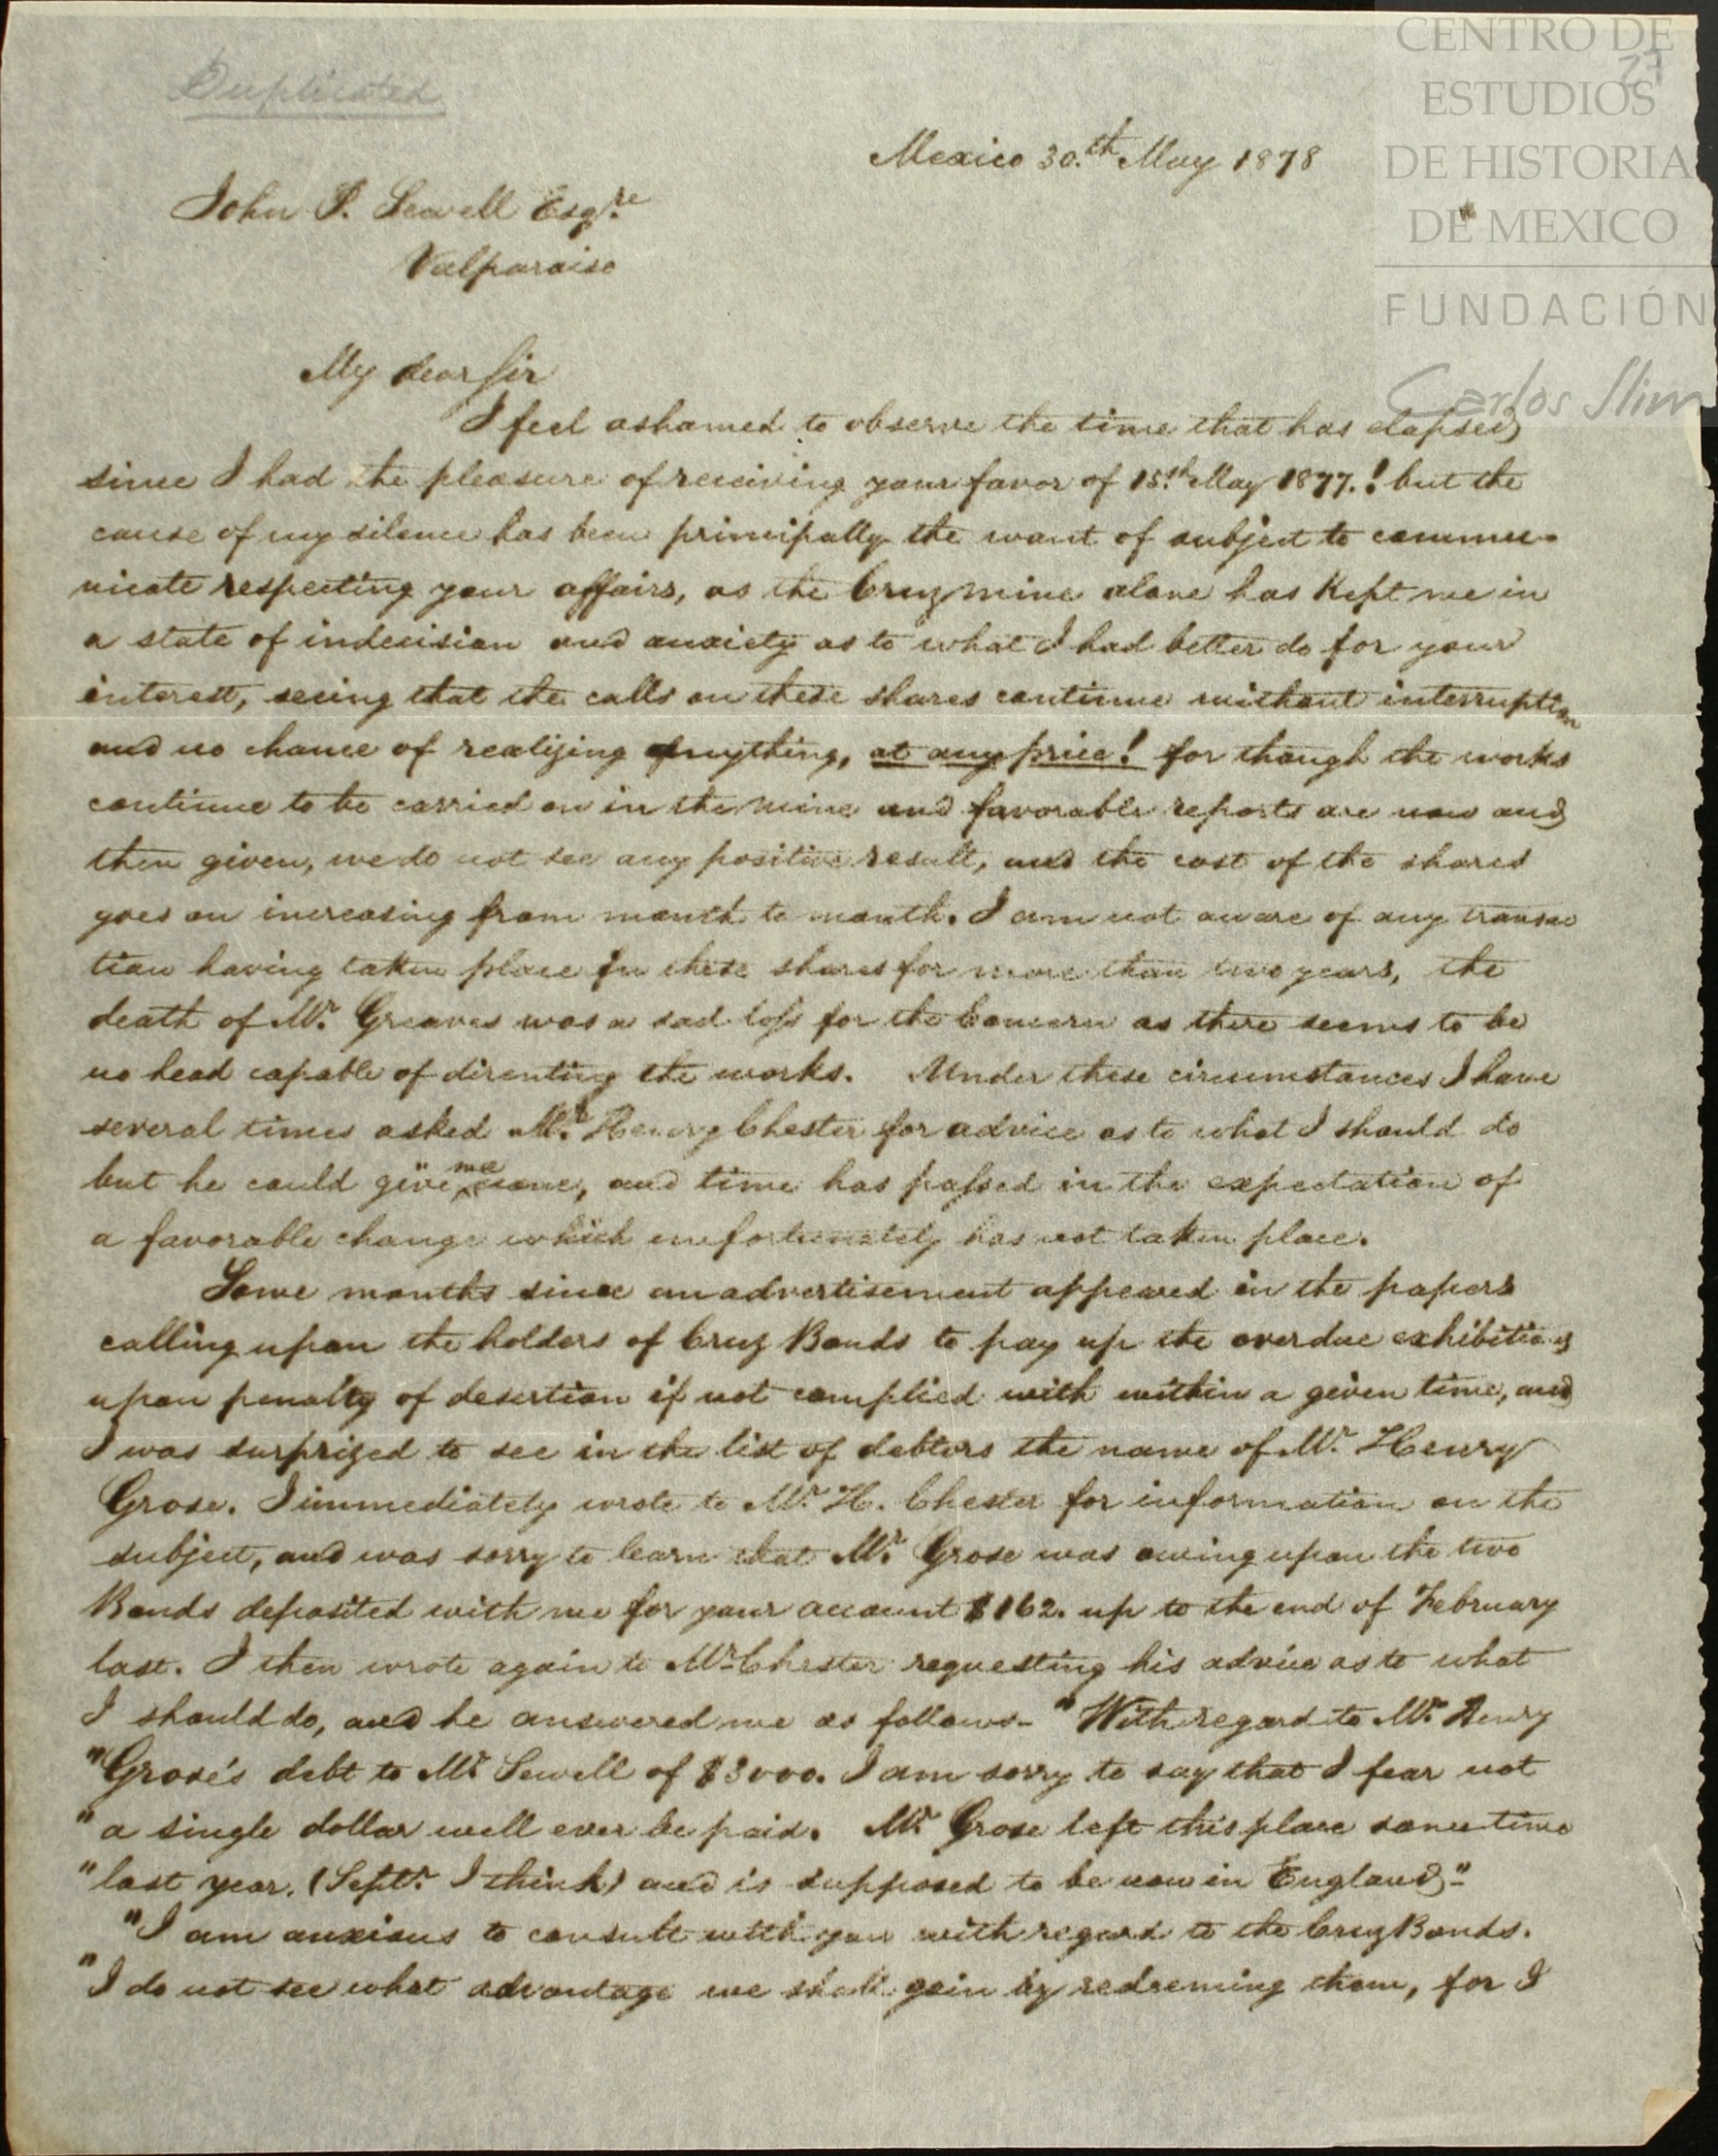 Duplicated
27
CENTRO DE
ESTUDIOS
DE HISTORIA
DE MEXICO
FUNDACIÓN
Carlos Slim
Mexico 30.th May 1878
John P. Sewell Esqre
Valparaiso
My dear Sir
I feel ashamed to observe the time that has elapsed
since I had the pleasure of receiving your favor of 15th May 1877.! but the
cause of my silence has been principally the want of subject to commu-
nicate respecting your affairs, as the Cruz mine alone has Kept me in
a state of indecision and anxiety as to what I had better do for your
interest, seeing that the calls on these shares continue without interruption
and no chance of realizing anything, at any price! for though the works
continue to be carried on in the mine and favorable reports are now and
then given, we do not see any positive result, and the cost of the shares
goes on increasing from month to month. I am not aware of any transac
tion having taken place in these shares for more than two years, the
death of Mr. Greaves was a sad loss for the Concern as there seems to be
no head capable of directing the works. Under these circumstances I have
several times asked Mr. Henry Chester for advice as to what I should do
but he could give me none, and time has passed in the expectation of
a favorable change which unfortunately has not taken place.
Some months since an advertisement appeared in the papers
calling upon the holders of Cruz Bonds to pay up the overdue exhibitions
upon penalty of desertion if not complied with within a given time, and
I was surprized to see in the list of debtors the name of Mr. Henry
Grose. I immediately wrote to Mr. H. Chester for information on the
subject, and was sorry to learn that Mr. Grose was owing upon the two
Bonds deposited with me for your account $162. up to the end of February
last. I then wrote again to Mr. Chester requesting his advice as to what
I should do, and he answered me as follows- "With regard to Mr. Henry
"Grose's debt to Mr. Sewell of $3000. I am sorry to say that I fear not
"a single dollar will ever be paid. Mr. Grose left this place some time
"last year. (Septr. I think) and is supposed to be now in England-"
"I am anxious to consult with you with regard to the Cruz Bonds.
"I do not see what advantage we shall gain by redeeming them, for I